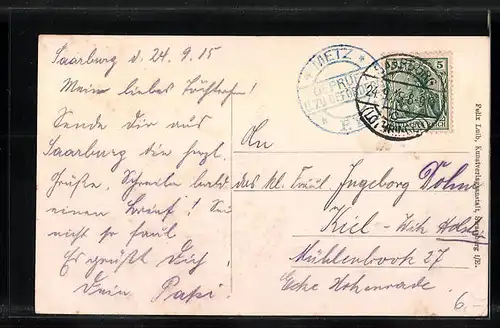 Saarburg d. 24.9.15
Mein liebes Töchterchen!
Sende dir aus
Saarburg die herzl.
Grüße. Schreibe bald
einen Brief! Sei
nicht so faul
Es grüßt dich,
dein Papi.
METZ
GEPRÜFT
ZU BEFÖRDERN
SAARBURG
24.9.15
(LOTHRINGEN)
5
An
das kl. Fräul. Ingeborg Dohm
Kiel - Wik Holst
Mühlenbrook 27
Ecke Hohenrade.
Felix Luib, Kunstverlagsanstalt, Strassburg i/E.
6,-